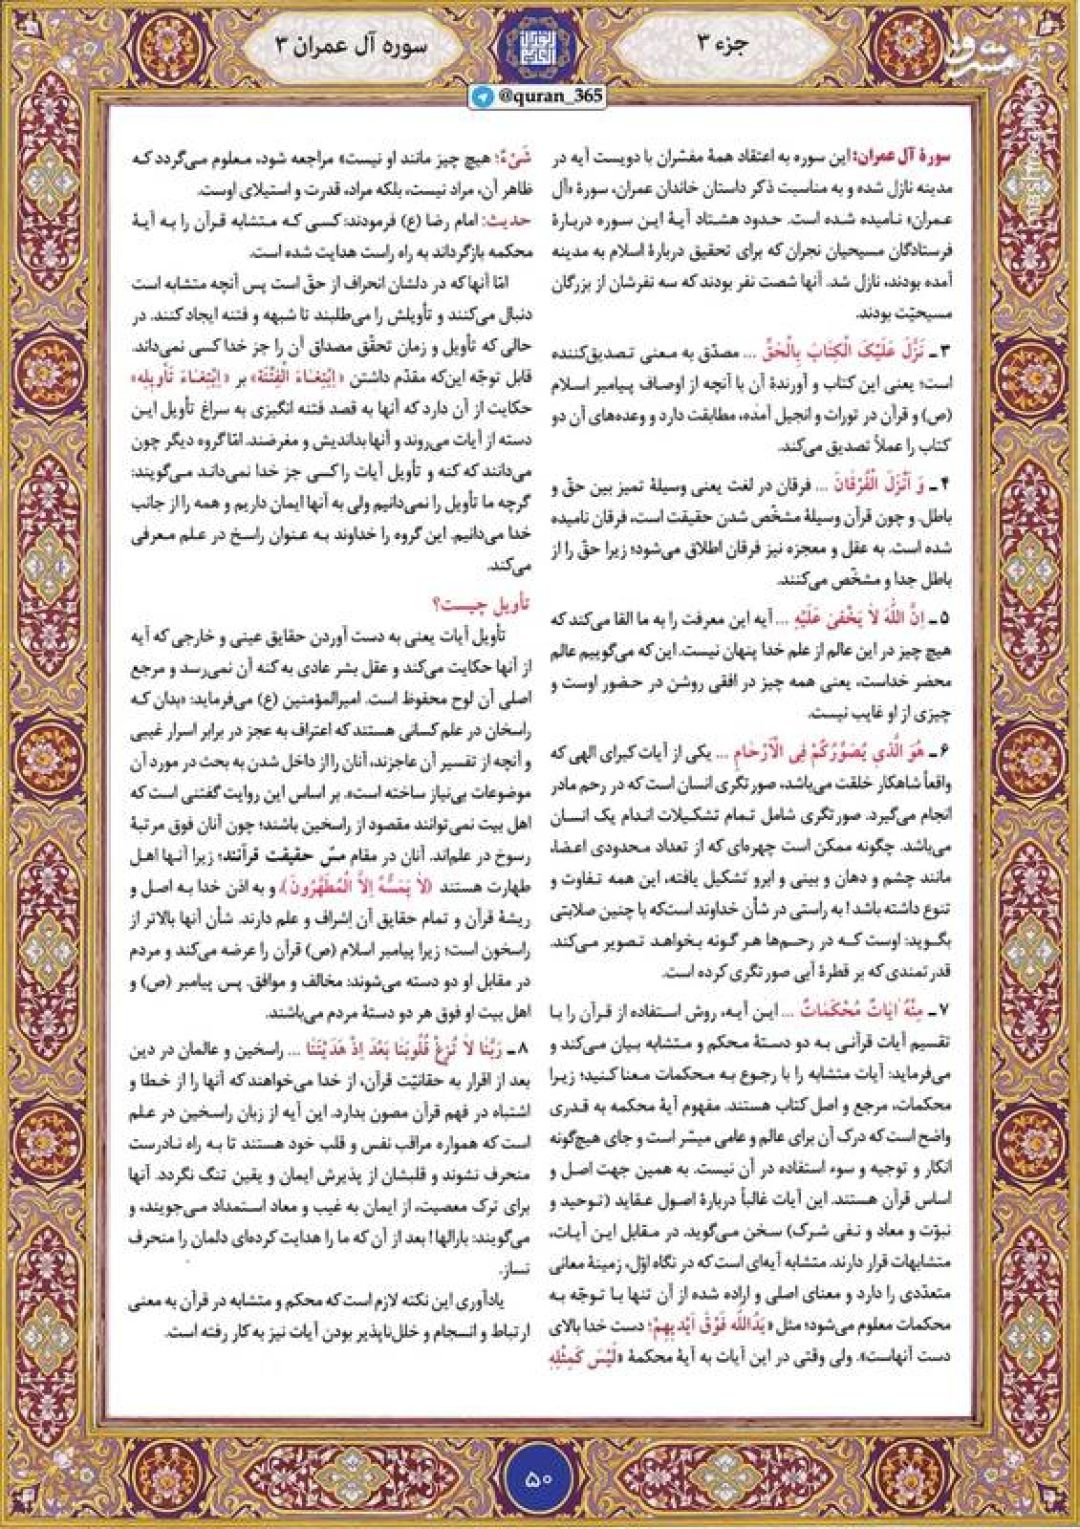 جزء ۳
سوره آل عمران ۳
@quran_365
سورهٔ آل عمران: این سوره به اعتقاد همهٔ مفسّران با دویست آیه در
مدینه نازل شده و به مناسبت ذکر داستان خاندان عمران، سورهٔ «آل
عمران» نامیده شده است. حدود هشتاد آیهٔ این سوره دربارهٔ
فرستادگان مسیحیان نجران که برای تحقیق دربارهٔ اسلام به مدینه
آمده بودند، نازل شد. آنها شصت نفر بودند که سه نفرشان از بزرگان
مسیحیّت بودند.
۳ـ نَزَّلَ عَلَیْکَ الْکِتَابَ بِالْحَقِّ ... مصدّق به معنی تصدیق‌کننده
است؛ یعنی این کتاب و آورندهٔ آن با آنچه از اوصاف پیامبر اسلام
(ص) و قرآن در تورات و انجیل آمده، مطابقت دارد و وعده‌های آن دو
کتاب را عملاً تصدیق می‌کند.
۴ـ وَ اَنْزَلَ الْفُرْقَانَ ... فرقان در لغت یعنی وسیلهٔ تمیز بین حقّ و
باطل. و چون قرآن وسیلهٔ مشخّص شدن حقیقت است، فرقان نامیده
شده است. به عقل و معجزه نیز فرقان اطلاق می‌شود؛ زیرا حقّ را از
باطل جدا و مشخّص می‌کنند.
۵ـ اِنَّ اللّٰهَ لاٰ یَخْفیٰ عَلَیْهِ ... آیه این معرفت را به ما القا می‌کند که
هیچ چیز در این عالم از علم خدا پنهان نیست. این‌که می‌گوییم عالم
محضر خداست، یعنی همه چیز در افقی روشن در حضور اوست و
چیزی از او غایب نیست.
۶ـ هُوَ الَّذي یُصَوِّرُکُمْ فِی الْاَرْحٰامِ ... یکی از آیات کبرای الهی که
واقعاً شاهکار خلقت می‌باشد، صورتگری انسان است که در رحم مادر
انجام می‌گیرد. صورتگری شامل تمام تشکیلات اندام یک انسان
می‌باشد. چگونه ممکن است چهره‌ای که از تعداد محدودی اعضا،
مانند چشم و دهان و بینی و ابرو تشکیل یافته، این همه تفاوت و
تنوع داشته باشد! به راستی در شأن خداوند است‌که با چنین صلابتی
بگوید: اوست که در رحم‌ها هر گونه بخواهد تصویر می‌کند.
قدرتمندی که بر قطرهٔ آبی صورتگری کرده است.
۷ـ مِنْهُ اٰیَاتٌ مُحْکَمَاتٌ ... این آیه، روش استفاده از قرآن را با
تقسیم آیات قرآنی به دو دستهٔ محکم و متشابه بیان می‌کند و
می‌فرماید: آیات متشابه را با رجوع به محکمات معنا کنید؛ زیرا
محکمات، مرجع و اصل کتاب هستند. مفهوم آیهٔ محکمه به قدری
واضح است که درک آن برای عالم و عامی میسّر است و جای هیچ‌گونه
انکار و توجیه و سوء استفاده در آن نیست. به همین جهت اصل و
اساس قرآن هستند. این آیات غالباً دربارهٔ اصول عقاید (توحید و
نبوّت و معاد و نفی شرک) سخن می‌گوید. در مقابل این آیات،
متشابهات قرار دارند. متشابه آیه‌ای است که در نگاه اوّل، زمینهٔ معانی
متعدّدی را دارد و معنای اصلی و اراده شده از آن تنها با توجّه به
محکمات معلوم می‌شود؛ مثل «یَدُ اللّٰه فَوْقَ اَیْدیهِمْ؛ دست خدا بالای
دست آنهاست». ولی وقتی در این آیات به آیهٔ محکمهٔ «لَیْسَ کَمِثْلِهِ
شَیْءٌ؛ هیچ چیز مانند او نیست» مراجعه شود، معلوم می‌گردد که
ظاهر آن، مراد نیست، بلکه مراد، قدرت و استیلای اوست.
حدیث: امام رضا (ع) فرمودند: کسی که متشابه قرآن را به آیهٔ
محکمه بازگرداند به راه راست هدایت شده است.
امّا آنها که در دلشان انحراف از حقّ است پس آنچه متشابه است
دنبال می‌کنند و تأویلش را می‌طلبند تا شبهه و فتنه ایجاد کنند. در
حالی که تأویل و زمان تحقّق مصداق آن را جز خدا کسی نمی‌داند.
قابل توجّه این‌که مقدّم داشتن «اِبْتِغٰاءَ الْفِتْنَة» بر «اِبْتِغٰاءَ تَأْوِیلِه»
حکایت از آن دارد که آنها به قصد فتنه انگیزی به سراغ تأویل این
دسته از آیات می‌روند و آنها بداندیش و مغرضند. امّا گروه دیگر چون
می‌دانند که کنه و تأویل آیات را کسی جز خدا نمی‌داند می‌گویند:
گرچه ما تأویل را نمی‌دانیم ولی به آنها ایمان داریم و همه را از جانب
خدا می‌دانیم. این گروه را خداوند به عنوان راسخ در علم معرفی
می‌کند.
تأویل چیست؟
تأویل آیات یعنی به دست آوردن حقایق عینی و خارجی که آیه
از آنها حکایت می‌کند و عقل بشر عادی به کنه آن نمی‌رسد و مرجع
اصلی آن لوح محفوظ است. امیرالمؤمنین (ع) می‌فرماید: «بدان که
راسخان در علم کسانی هستند که اعتراف به عجز در برابر اسرار غیبی
و آنچه از تفسیر آن عاجزند، آنان را از داخل شدن به بحث در مورد آن
موضوعات بی‌نیاز ساخته است». بر اساس این روایت گفتنی است که
اهل بیت نمی‌توانند مقصود از راسخین باشند؛ چون آنان فوق مرتبهٔ
رسوخ در علم‌اند. آنان در مقام مسّ حقیقت قرآنند؛ زیرا آنها اهل
طهارت هستند (لاٰ یَمَسُّهُ اِلاَّ الْمُطَهَّرُونَ)، و به اذن خدا به اصل و
ریشهٔ قرآن و تمام حقایق آن اِشراف و علم دارند. شأن آنها بالاتر از
راسخون است؛ زیرا پیامبر اسلام (ص) قرآن را عرضه می‌کند و مردم
در مقابل او دو دسته می‌شوند: مخالف و موافق. پس پیامبر (ص) و
اهل بیت او فوق هر دو دستهٔ مردم می‌باشند.
۸ـ رَبَّنٰا لاٰ تُزِغْ قُلُوبَنٰا بَعْدَ اِذْ هَدَیْتَنٰا ... راسخین و عالمان در دین
بعد از اقرار به حقانیّت قرآن، از خدا می‌خواهند که آنها را از خطا و
اشتباه در فهم قرآن مصون بدارد. این آیه از زبان راسخین در علم
است که همواره مراقب نفس و قلب خود هستند تا به راه نادرست
منحرف نشوند و قلبشان از پذیرش ایمان و یقین تنگ نگردد. آنها
برای ترک معصیت، از ایمان به غیب و معاد استمداد می‌جویند، و
می‌گویند: بارالها! بعد از آن که ما را هدایت کرده‌ای دلمان را منحرف
نساز.
یادآوری این نکته لازم است که محکم و متشابه در قرآن به معنی
ارتباط و انسجام و خلل‌ناپذیر بودن آیات نیز به کار رفته است.
۵۰